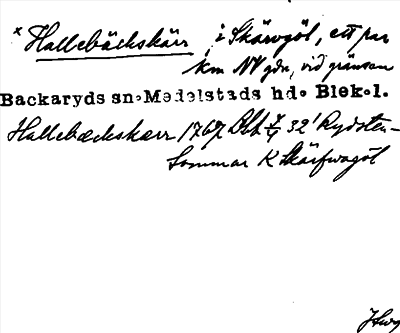 × Hallebäckskärr, i Skärvgöl, ett par
km NV gdn, vid gränsen
Backaryds sn. Medelstads hd. Blek.l.
Hallebæckskærr 1767 Blkt 32' Rydsten-
Sommar K Skärfwagöl